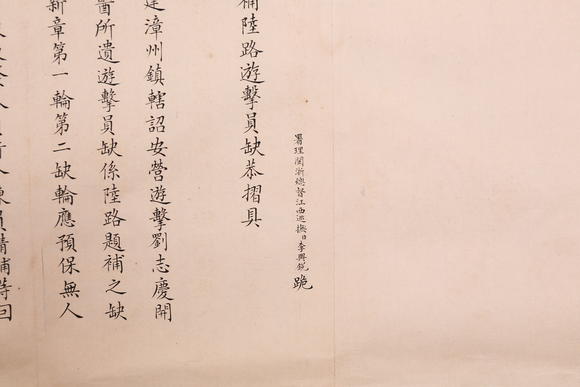 署理閩浙總督江西巡撫臣李興銳跪
補陸路遊擊員缺恭摺具
建漳州鎮轄詔安營遊擊劉志慶開
所遺遊擊員缺係陸路題補之缺
新章第一輪第二缺輪應預保無人
員請補等因